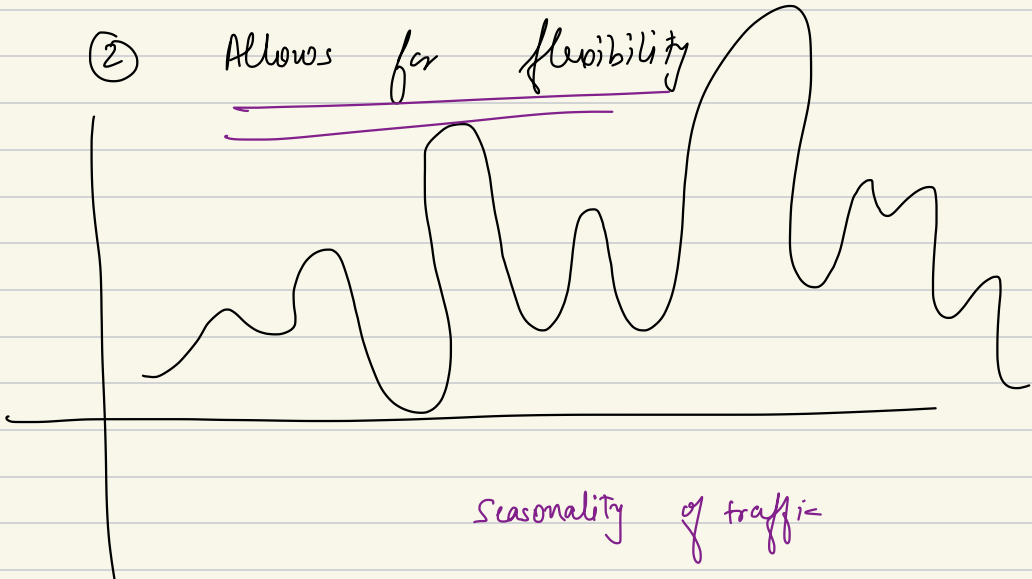 ② Allows for flexibility
Seasonality of traffic